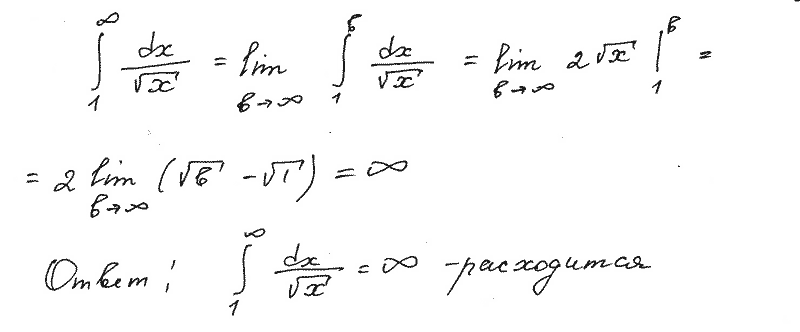 ∫₁^∞ dx/√x = lim_{b→∞} ∫₁^b dx/√x = lim_{b→∞} 2√x |₁^b =
= 2 lim_{b→∞} (√b - √1) = ∞
Ответ: ∫₁^∞ dx/√x = ∞ - расходится